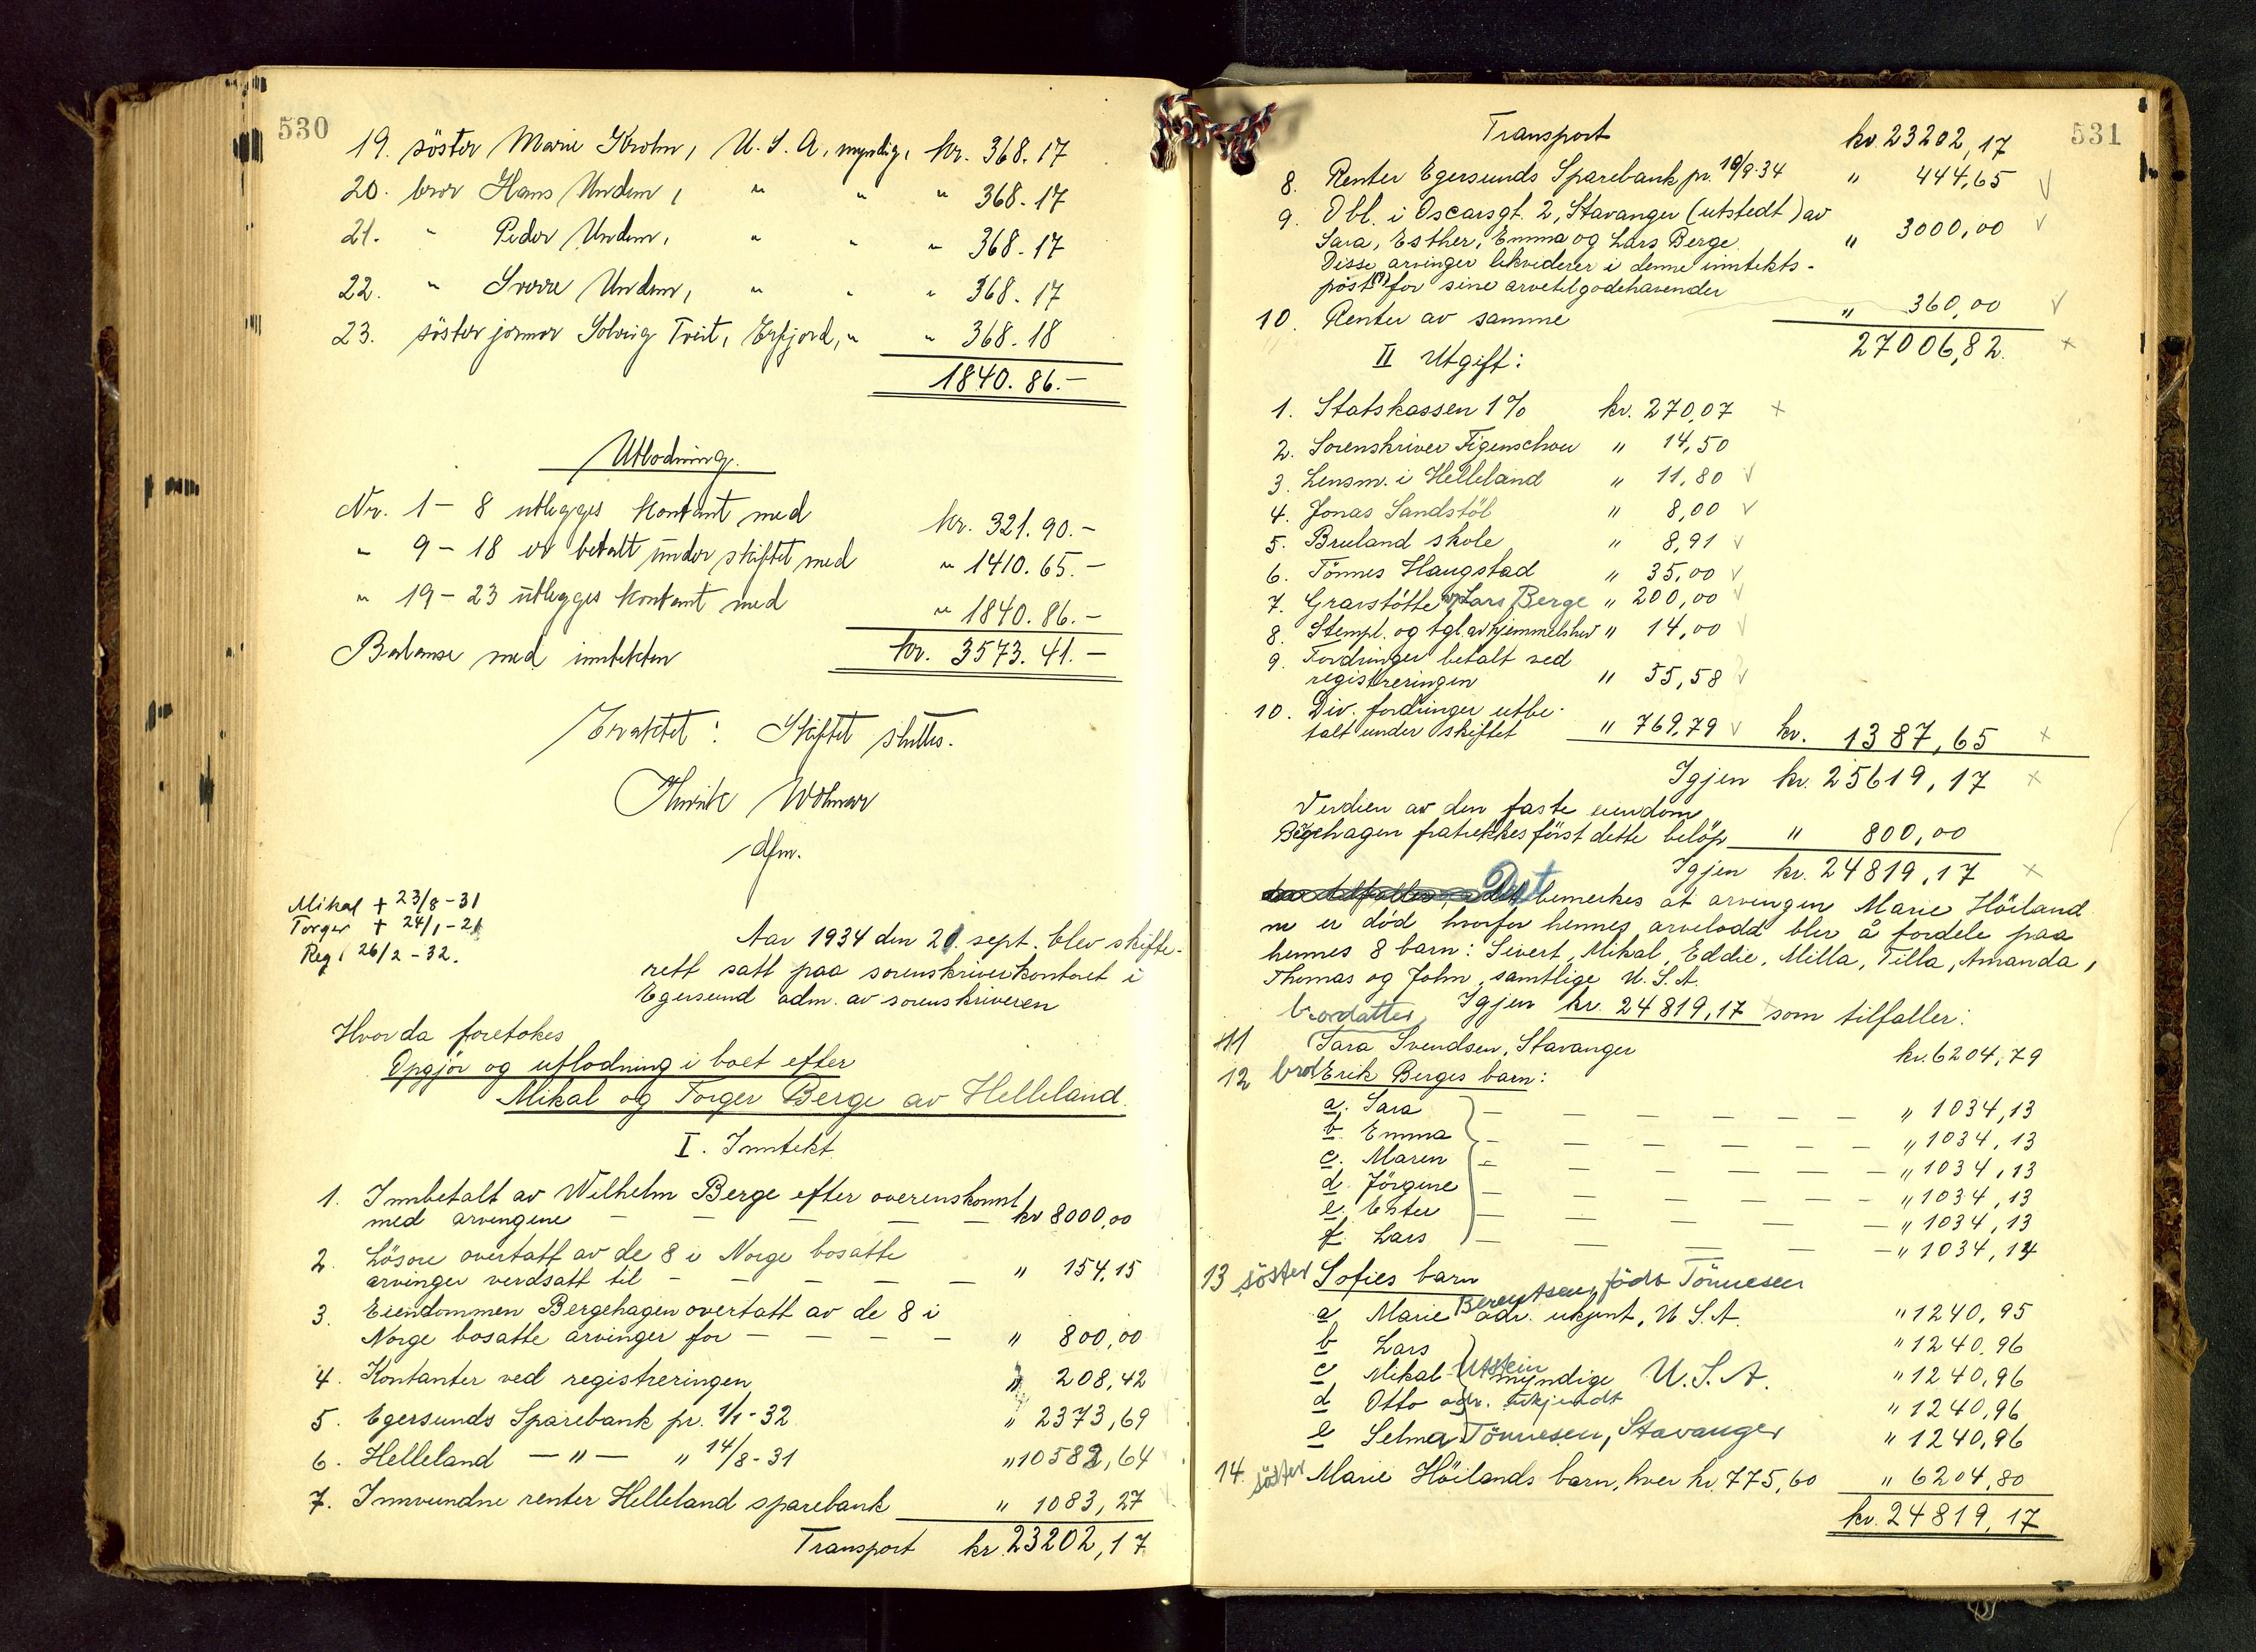 530
19. söster Marie Krohn, U. S. A, myndig, kr. 368.17
20. bror Hans Undem, " " " 368.17
21. " Peder Undem, " " " 368.17
22. " Sverre Undem, " " " 368.17
23. söster Solveig Tveit, Erfjord, " " 368.18
1840.86.-
Utlodning.
Nr. 1 - 8 utlegges kontant med kr. 321.90.-
" 9 - 18 er betalt under skiftet med " 1410.65.-
" 19 - 23 utlegges kontant med " 1840.86.-
Balanse med inntekten kr. 3573.41.-
Eraktet: Skiftet sluttes.
dfm.
Mikal + 23/8-31
Torger + 24/1-21
Reg. 26/2-32.
Aar 1934 den 21. sept. blev skifte-
rett satt paa sorenskriverkontoret i
Egersund adm. av sorenskriveren
Hvor da foretokes
Opgjör og utlodning i boet efter
Mikal og Torger Berge av Helleland.
I. Inntekt
1. Innbetalt av Wilhelm Berge efter overenskomst
med arvingene — — — — kr 8000,00
2. Lösöre overtatt av de 8 i Norge bosatte
arvinger verdsatt til — — — — — " 154,15
3. Eiendommen Bergehagen overtatt av de 8 i
Norge bosatte arvinger for — — — — " 800,00
4. Kontanter ved registreringen " 208,42
5. Egersunds Sparebank pr. 1/1-32 " 2373,69
6. Helleland — " — " 14/8-31 " 10582,64
7. Innvundne renter Helleland sparebank " 1083,27
Transport kr. 23202,17
531
Transport kr. 23202,17
8. Renter Egersunds Sparebank pr. 10/9-34 " 444,65
9. Obl. i Oscarsgt. 2, Stavanger (utstedt) av
Sara, Esther, Emma og Lars Berge. " 3000,00
Disse arvinger likviderer i denne inntekts-
post (9) for sine arvetilgodehavender
10. Renter av samme " 360,00
27006,82.
II Utgift:
1. Statskassen 1% kr. 270,07
2. Sorenskriver Figenschou " 14,50
3. Lensm. i Helleland " 11,80
4. Jonas Sandstöl " 8,00
5. Bruland skole " 8,91
6. Tönnes Haugstad " 35,00
7. Gravstötte v/Lars Berge " 200,00
8. Stempl. og tgl. av hjemmelsbrev " 14,00
9. Fordringer betalt ved
registreringen " 55,58
10. Div. fordringer utbe-
talt under skiftet " 769,79 kr. 1387,65
Igjen kr. 25619,17
Verdien av den faste eiendom
Bergehagen fratrekkes först dette belöp " 800,00
Igjen kr. 24819,17
Det bemerkes at arvingen Marie Höiland
nu er död hvorfor hennes arvelodd blir å fordele paa
hennes 8 barn: Sivert, Mikal, Eddie, Milla, Tilla, Amanda,
Thomas og John, samtlige U. S. A.
Igjen kr. 24819,17 som tilfaller:
brordatter
11 Sara Svendsen, Stavanger kr. 6204,79
12 bror Erik Berges barn:
a. Sara — — — — — — " 1034,13
b. Emma — — — — — — " 1034,13
c. Maren — — — — — — " 1034,13
d. Jörgine — — — — — — " 1034,13
e. Ester — — — — — " 1034,13
f. Lars — — — — — " 1034,14
13 söster Sofies barn
a Marie Berentsen, födt Tönnesen adr. ukjent, U. S. A. " 1240,95
b Lars " 1240,96
c Mikal Utstein myndige U. S. A. " 1240,96
d Otto adr. ukjendt " 1240,96
e Selma Tönnesen, Stavanger " 1240,96
14. söster Marie Höilands barn, hver kr. 775,60 " 6204,80
kr. 24819,17